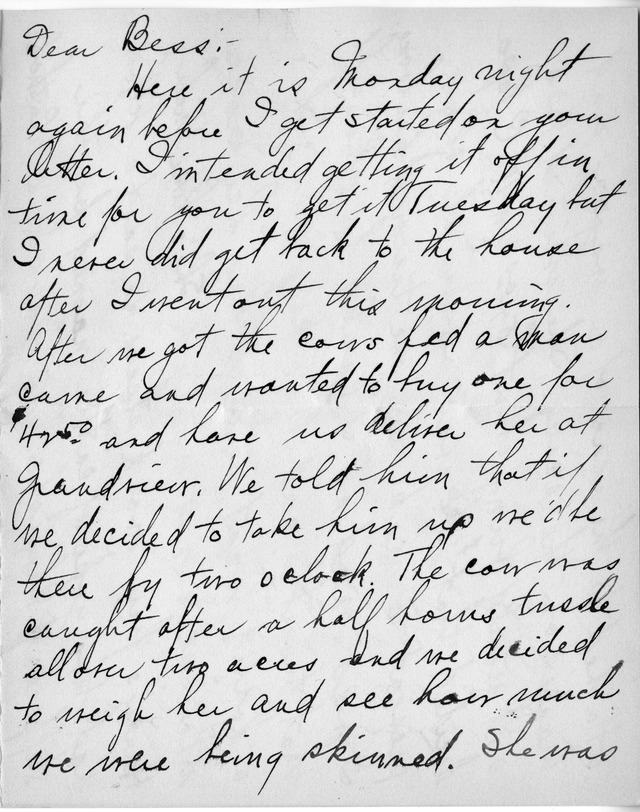 Dear Bess:-
Here it is Monday night
again before I get started on your
letter. I intended getting it off in
time for you to get it Tuesday but
I never did get back to the house
after I went out this morning.
After we got the cows fed a man
came and wanted to buy one for
$42.50 and have us deliver her at
Grandview. We told him that if
we decided to take him up we'd be
there by two oclock. The cow was
caught after a half hours tussle
all over two acres and we decided
to weigh her and see how much
we were being skinned. She was